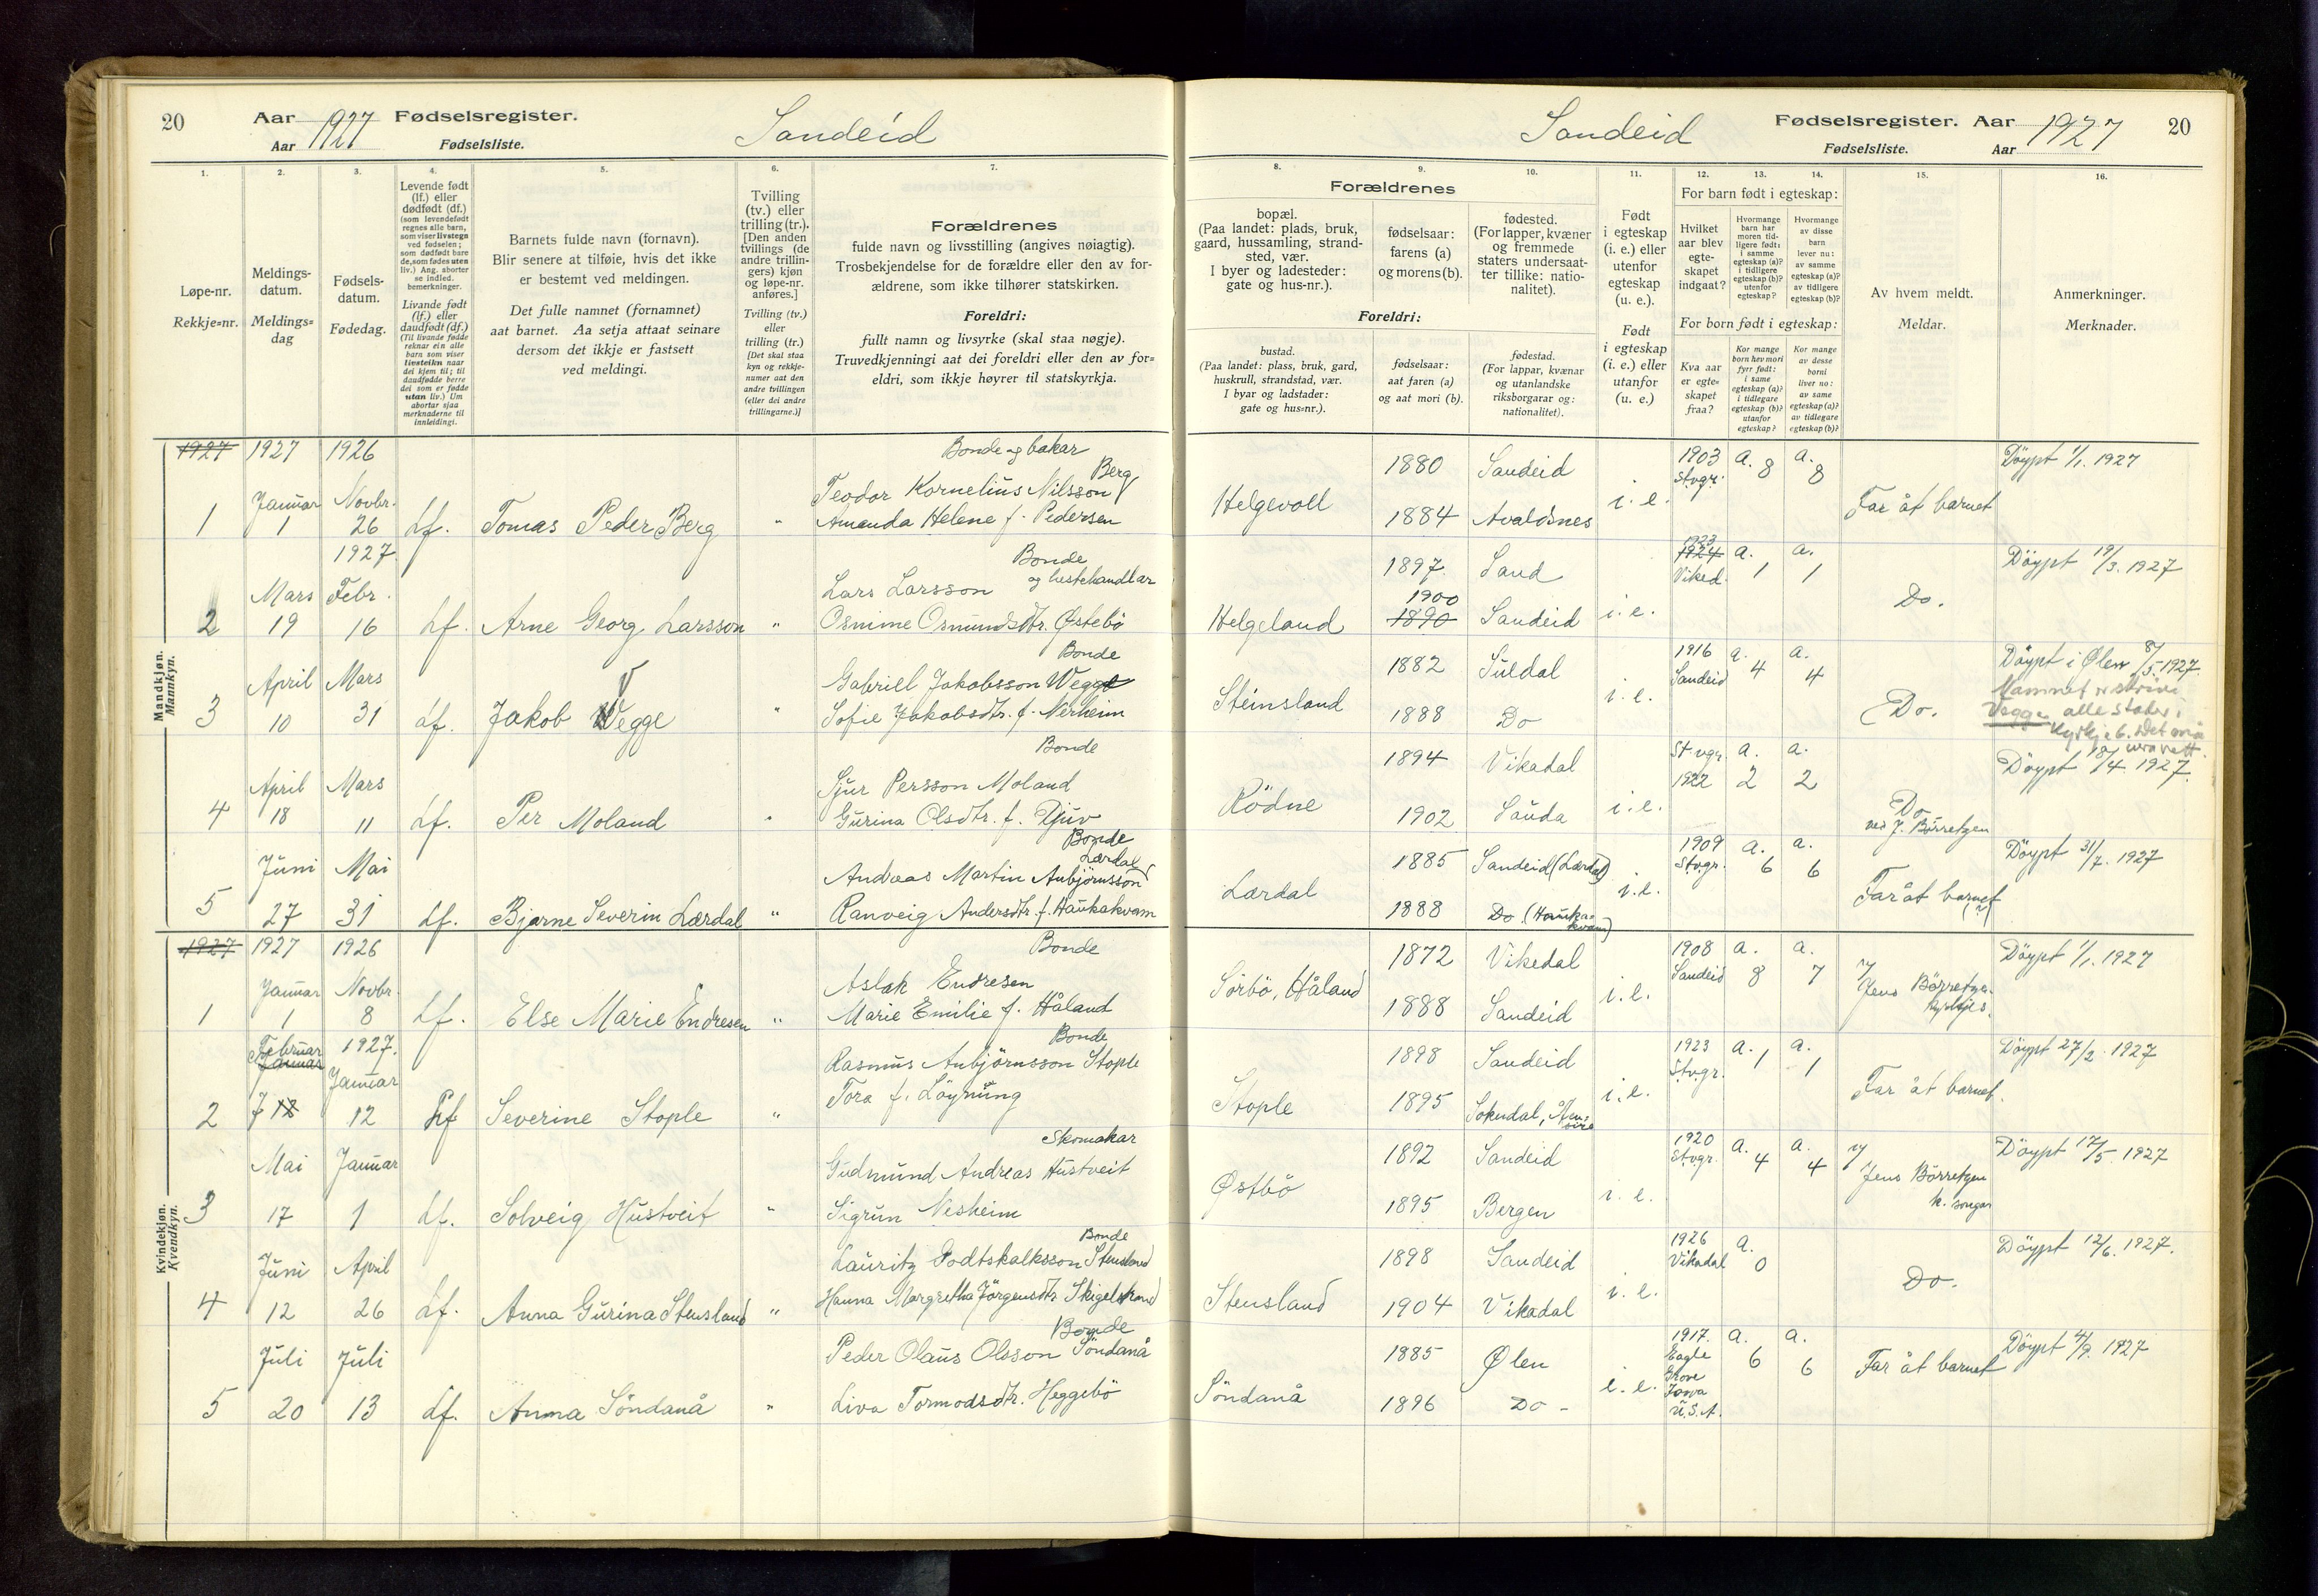 20 Aar 1927 Fødselsregister. Sandeid
Aar Fødselsliste.
Sandeid Fødselsregister. Aar 1927 20
Fødselsliste. Aar
1. 2. 3. 4. 5. 6. 7.
Løpe-nr.
Rekkje=nr.
Meldings-
datum.
Meldings=
dag
Fødsels-
datum.
Fødedag.
Levende født
(lf.) eller
dødfødt (df.)
(som levendefødt
regnes alle barn,
som viser livstegn
ved fødselen;
som dødfødt bare
de, som fødes uten
liv.) Ang. aborter
se indled.
bemerkninger.
Livande født
(lf.) eller
daudfødt (df.)
(Til livande fødde
reknar ein alle
barn som viser
livsteikn naar
dei kjem til; til
daudfødde berre
dei som er fødde
utan liv.) Um
abortar sjaa
merknaderne til
innleidingi.
Barnets fulde navn (fornavn).
Blir senere at tilføie, hvis det ikke
er bestemt ved meldingen.
Det fulle namnet (fornamnet)
aat barnet. Aa setja attaat seinare
dersom det ikkje er fastsett
ved meldingi.
Tvilling
(tv.) eller
trilling (tr.).
[Den anden
tvillings (de
andre trillin-
gers) kjøn
og løpe-nr.
anføres.]
Tvilling (tv.)
eller
trilling (tr.)
[Det skal staa
kyn og rekkje-
numer aat den
andre tvillingen
(eller dei andre
trillingarne.)]
Forældrenes
fulde navn og livsstilling (angives nøiagtig).
Trosbekjendelse for de forældre eller den av for-
ældrene, som ikke tilhører statskirken.
Foreldri:
fullt namn og livsyrke (skal staa nøgje).
Truvedkjenningi aat dei foreldri eller den av for=
eldri, som ikkje høyrer til statskyrkja.
8. 9. 10. 11. 12. 13. 14. 15. 16.
Forældrenes
bopæl.
(Paa landet: plads, bruk,
gaard, hussamling, strand-
sted, vær.
I byer og ladesteder:
gate og hus-nr.).
fødselsaar:
farens (a)
og morens (b).
fødested.
(For lapper, kvæner
og fremmede
staters undersaat-
ter tillike: natio-
nalitet).
Foreldri:
bustad.
(Paa landet: plass, bruk, gard,
huskrull, strandstad, vær.
I byar og ladstader:
gate og hus=nr.).
fødselsaar:
aat faren (a)
og aat mori (b).
fødestad.
(For lappar, kvænar
og utanlandske
riksborgarar og:
nationalitet).
Født
i egteskap
(i. e.) eller
utenfor
egteskap
(u. e.).
Født
i egteskap
(i. e.) eller
utanfor
(u. e.)
For barn født i egteskap:
Hvilket
aar blev
egte-
skapet
indgaat?
Hvormange
barn har
moren tid-
ligere født:
i samme
egteskap (a)?
i tidligere
egteskap (b)?
utenfor
egteskap?
Hvormange
av disse
barn
lever nu:
av samme
egteskap (a)?
av tidligere
egteskap (b)?
For born født i egteskap:
Kva aar
er egte=
skapet
fraa?
Kor mange
born hev mori
fyrr født:
i same
egteskap (a)?
i tidlegare
egteskap (b)?
utanfor
egteskap?
Kor mange
av desse
borni
liver no:
av same
egteskap (a)?
av tidlegare
egteskap (b)?
Av hvem meldt.
Meldar.
Anmerkninger.
Merknader.
Mandkjøn.
Mannkyn.
1927 1927 1926 Bonde og bakar
Berg
1 Januar 1 Novbr. 26 Lf. Tomas Peder Berg " Teodor Kornelius Nilsson
Amanda Helene f. Pedersen
Helgevoll 1880 Sandeid i. e. 1903 Stvgr. a. 8 a. 8 Far åt barnet Döypt 1/1. 1927
1884 Avaldsnes
1927. Bonde
og hestehandlar
2 Mars 19 Febr. 16 Lf. Arne Georg Larsson " Lars Larsson
Osmine Osmundsdtr. Østebö
Helgeland 1897. Sand i. e. 1923 1924 Viked. a. 1 a. 1 Do. Döypt 19/3. 1927
1900 1890 Sandeid
Bonde
3 April 10 Mars 31 Lf. Jakob Vegge " Gabriell Jakobsson Wegge
Sofie Jakobsdtr. f. Nerheim
Steinsland 1882 Suldal i. e. 1916 Sandeid a. 4 a. 4 Do. Döypt i Ølen 8/5. 1927
1888 Do
Namnet
Vegge alle stader i
kyrkjeb. Det må
vera rett.
Bonde
4 April 18 Mars 11 Lf. Per Moland " Sjur Persson Moland
Gurina Olsdtr. f. Djuv
Rödne 1894 Vikadal i. e. Stvgr. 1922 a. 2 a. 2 Do ved J. Börretzen Döypt 18/4. 1927.
1902 Sauda
Bonde
Lærdal
5 Juni 27 Mai 31 Lf. Bjarne Severin Lærdal " Andreas Martin Anbjörnsson
Ranveig Andersdtr. f. Haukakvam
Lærdal 1885 Sandeid (Lærdal) i. e. 1909 Stvgr. a. 6 a. 6 Far åt barnet Döypt 31/7. 1927
1888 Do. (Hauka-
kvam)
Kvindekjøn.
Kvendkyn.
1927 1927 1926 Bonde
1 Januar 1 Novbr. 8 Lf. Else Marie Endresen " Aslak Endresen
Marie Emilie f. Håland
Sörbö, Håland 1872 Vikedal i. e. 1908 Sandeid a. 8 a. 7 v/ Jens Börretzen Döypt 1/1. 1927
1888 Sandeid
Februar Januar 1927. Bonde
2 7 12 Januar 12 Lf Severine Stople " Rasmus Anbjörnsson Stople
Tora f. Löyning
Stople 1898 Sandeid i. e. 1923 Stvgr. a. 1 a. 1 Far åt barnet. Döypt 27/2. 1927
1895 Sokndal,
Skomakar
3 Mai 17 Januar 1 Lf. Solveig Hustveit " Gudmund Andreas Hustveit
Sigrun Nesheim
Østbö 1892 Sandeid i. e. 1920 Stvgr. a. 4 a. 4 v/ Jens Börretzen k. songar Döypt 17/5. 1927
1895 Bergen
Bonde
4 Juni 12 April 26 Lf. Anna Gurina Stensland " Lauritz Godtskalksson Stensland
Hanna Margretha Jörgensdtr. Skigelstrand
Stensland 1898 Sandeid i. e. 1926 Vikadal a. 0 Do. Döypt 12/6. 1927.
1904 Vikadal
Bonde
5 Juli 20 Juli 13 Lf. Anna Söndanå " Peder Olaus Olsson Söndanå
Liva Tormodsdtr. Heggebö
Söndanå 1885 Ølen i. e. 1917. Eagle Grove Jowa U.S.A. a. 6 a. 6 Far åt barnet Döypt 4/9. 1927
1896 Do -